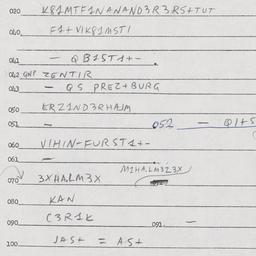 020 K81MTF1NANAND3R3RS+TUT
040 F1+VIK81MST1
041 — QB1ST1+-
042 QNP ZENTIR
043 — QS PREZ+BURG
050 ERZ1ND3RHAJM
051 —
052 — Q1+S
060 VIHIN-FURST1+-
061 —
M1HALM3Z3X
070 3XHALM3X
080 KAN
090 C3R1K
091. —
100 JAS+ = AS+